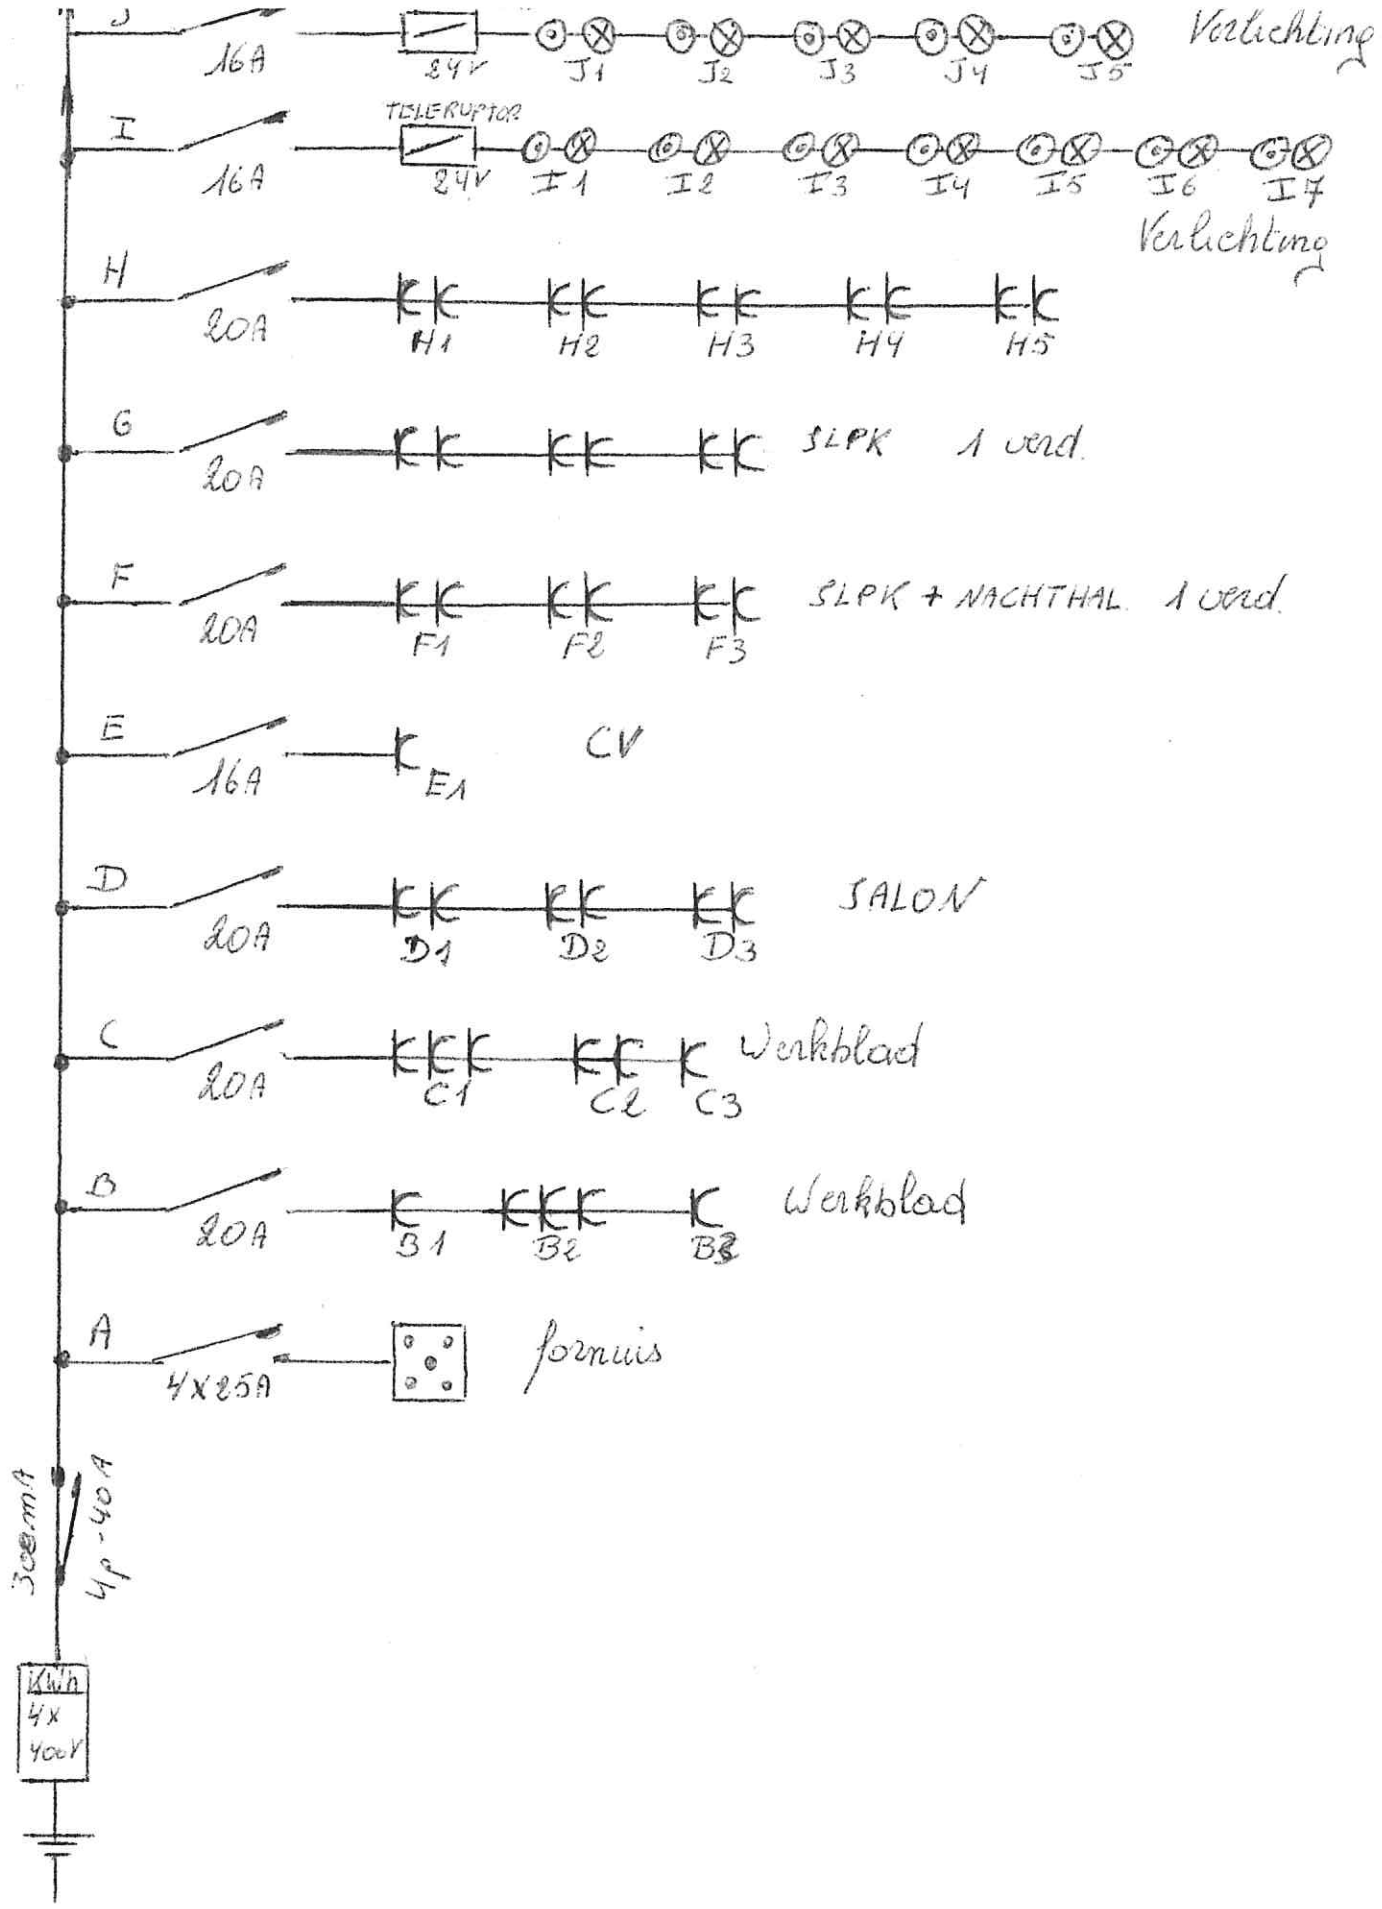 J
16A
24V
J1 J2 J3 J4 J5
Verlichting
TELERUPTOR
I
16A
24V
I1 I2 I3 I4 I5 I6 I7
Verlichting
H
20A
H1 H2 H3 H4 H5
G
20A
SLPK 1 verd.
F
20A
F1 F2 F3
SLPK + NACHTHAL 1 verd.
E
16A
E1
CV
D
20A
D1 D2 D3
SALON
C
20A
C1 C2 C3
Werkblad
B
20A
B1 B2 B3
Werkblad
A
4x25A
fornuis
300mA
4p-40A
kWh
4x
400V